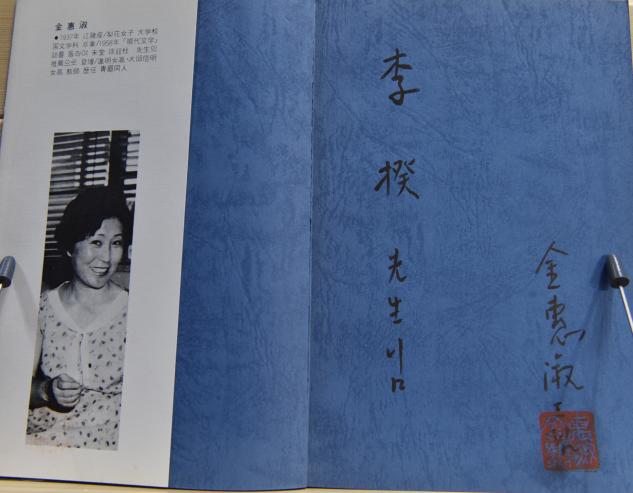 金 惠 淑
●1937年 江陵産/梨花女子 大学校
英文学科 卒業/1958年「現代文学」
誌를 통하여 未堂 徐廷柱 先生의
推薦으로 登壇/進明女高・大邱信明
女高 教師 歴任 靑眉同人
李 揆 先生님
金惠淑